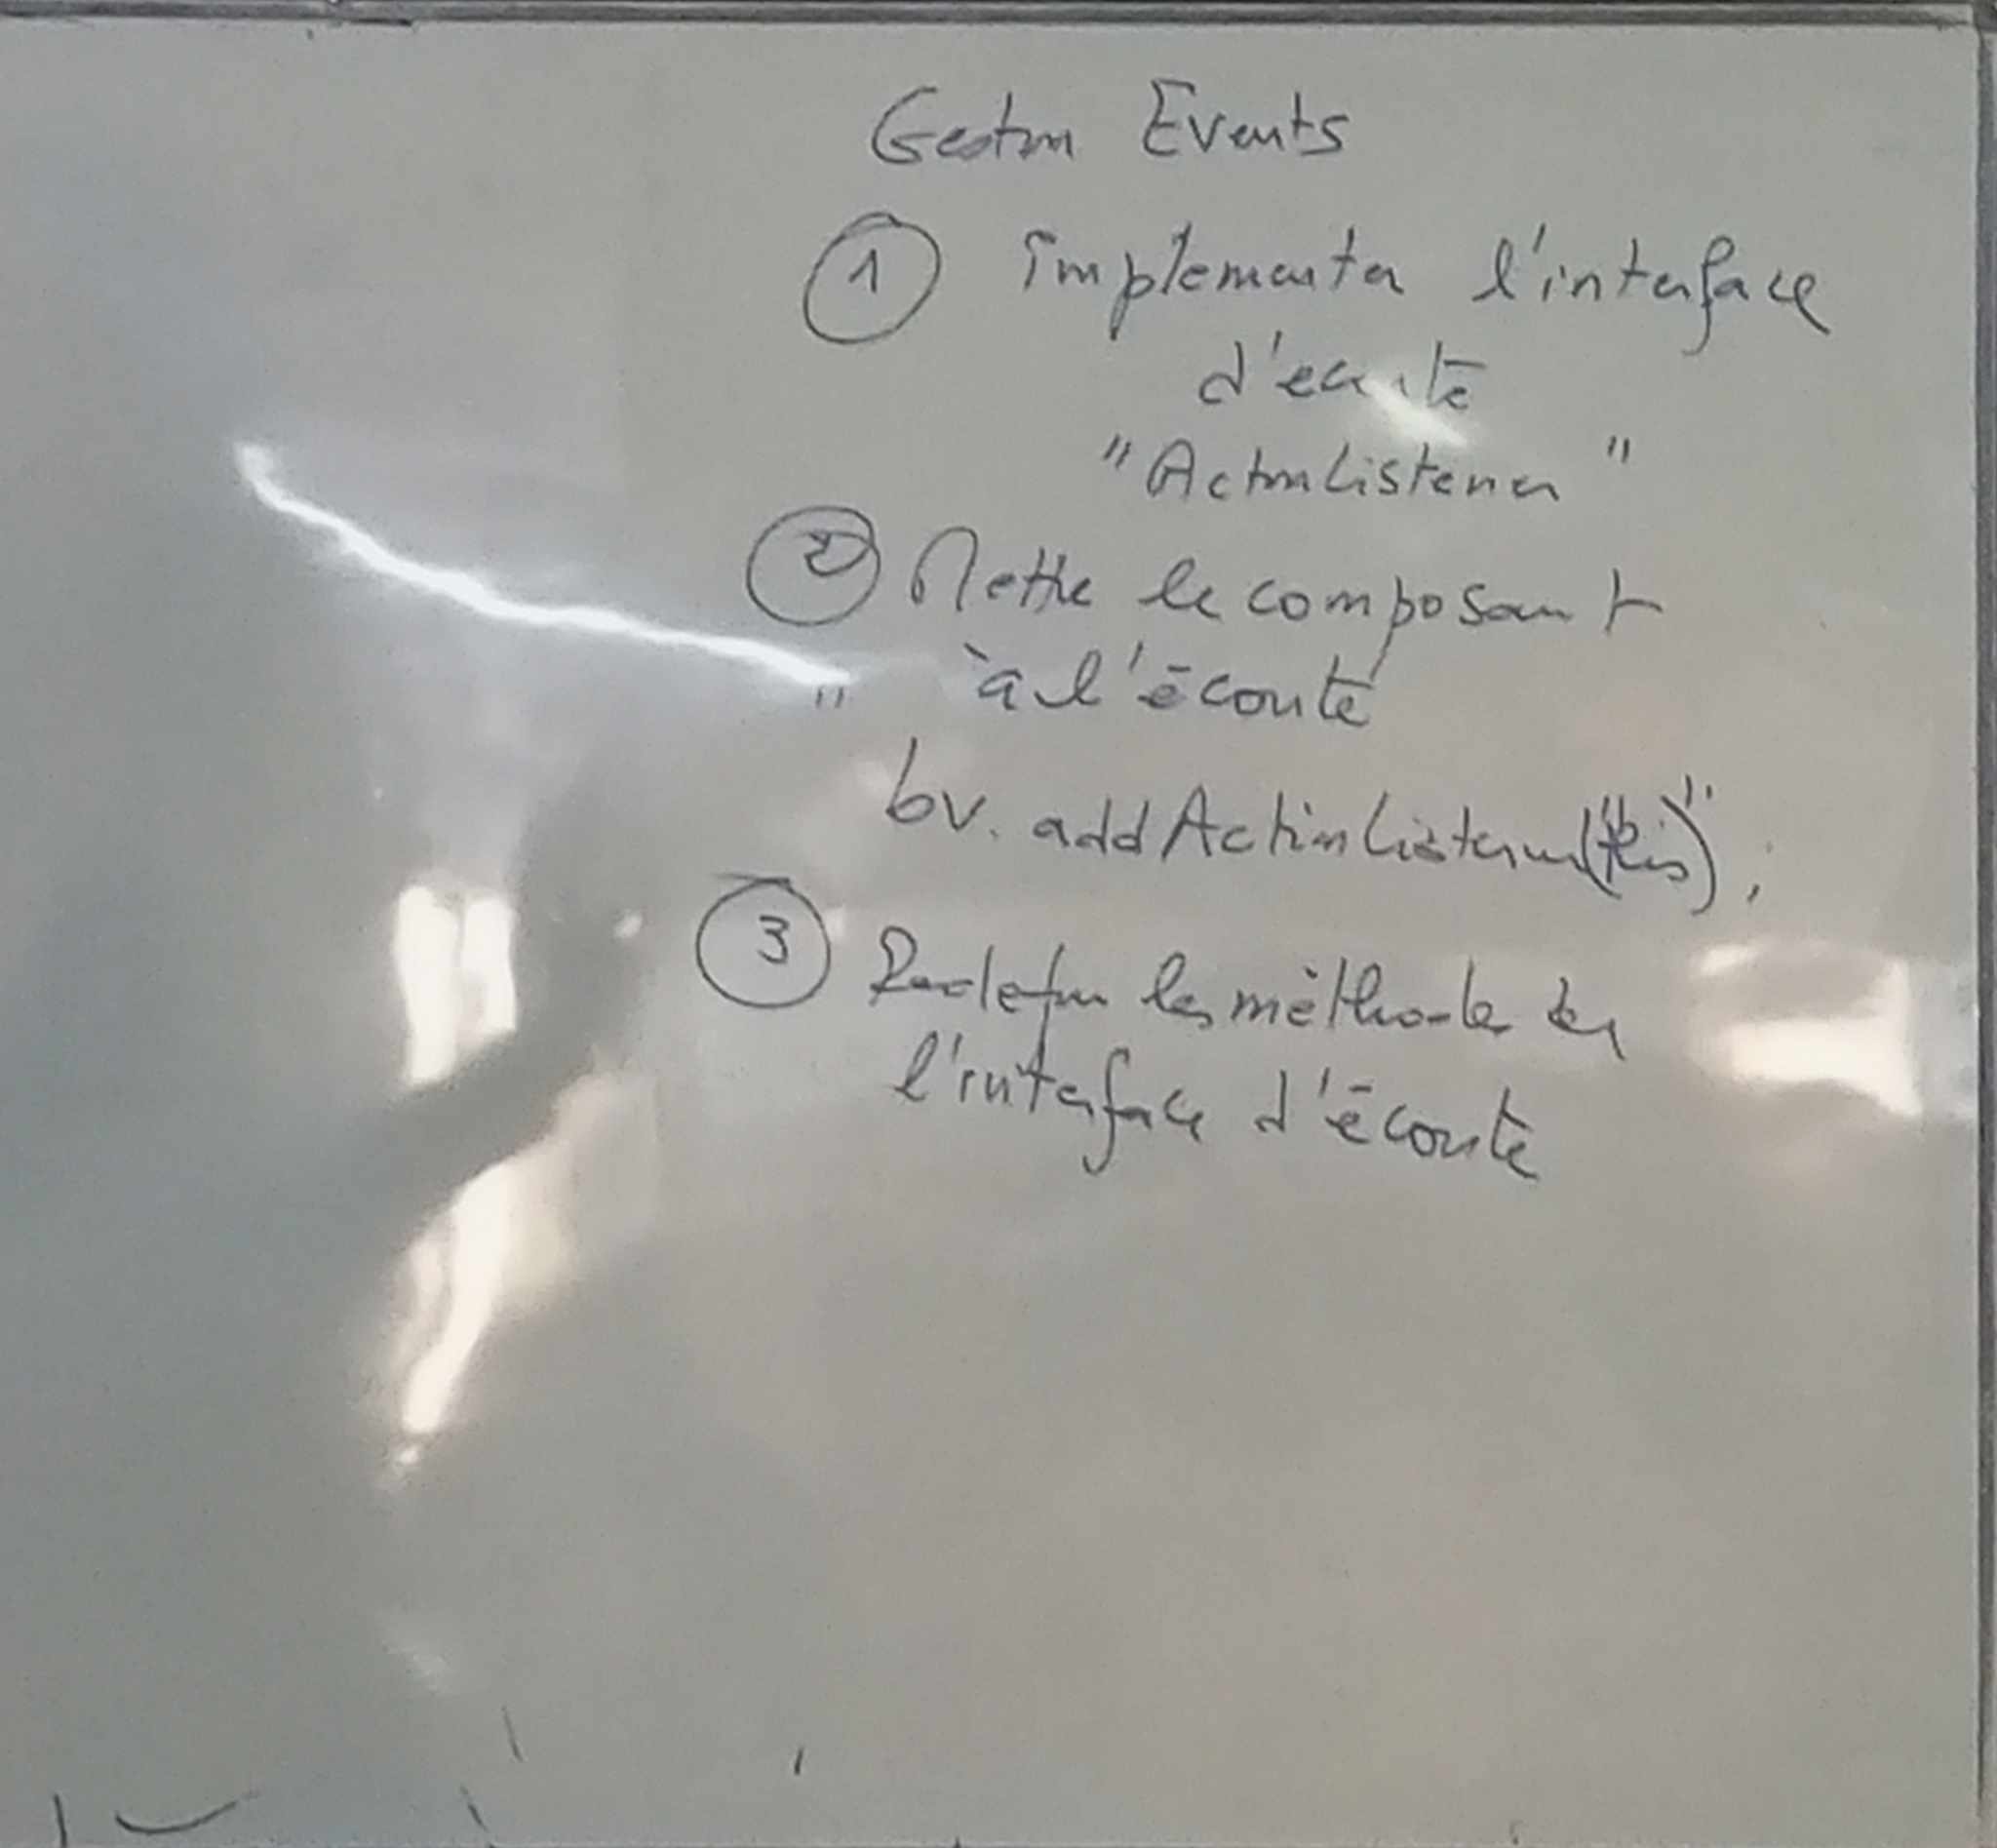 Gestion Events
1 implementer l'interface
d'ecoute
"ActionListener"
2 Mettre le composant
" à l'écoute
bv.addActionListener(this)";
3 Redefinir les méthodes de
l'interface d'écoute